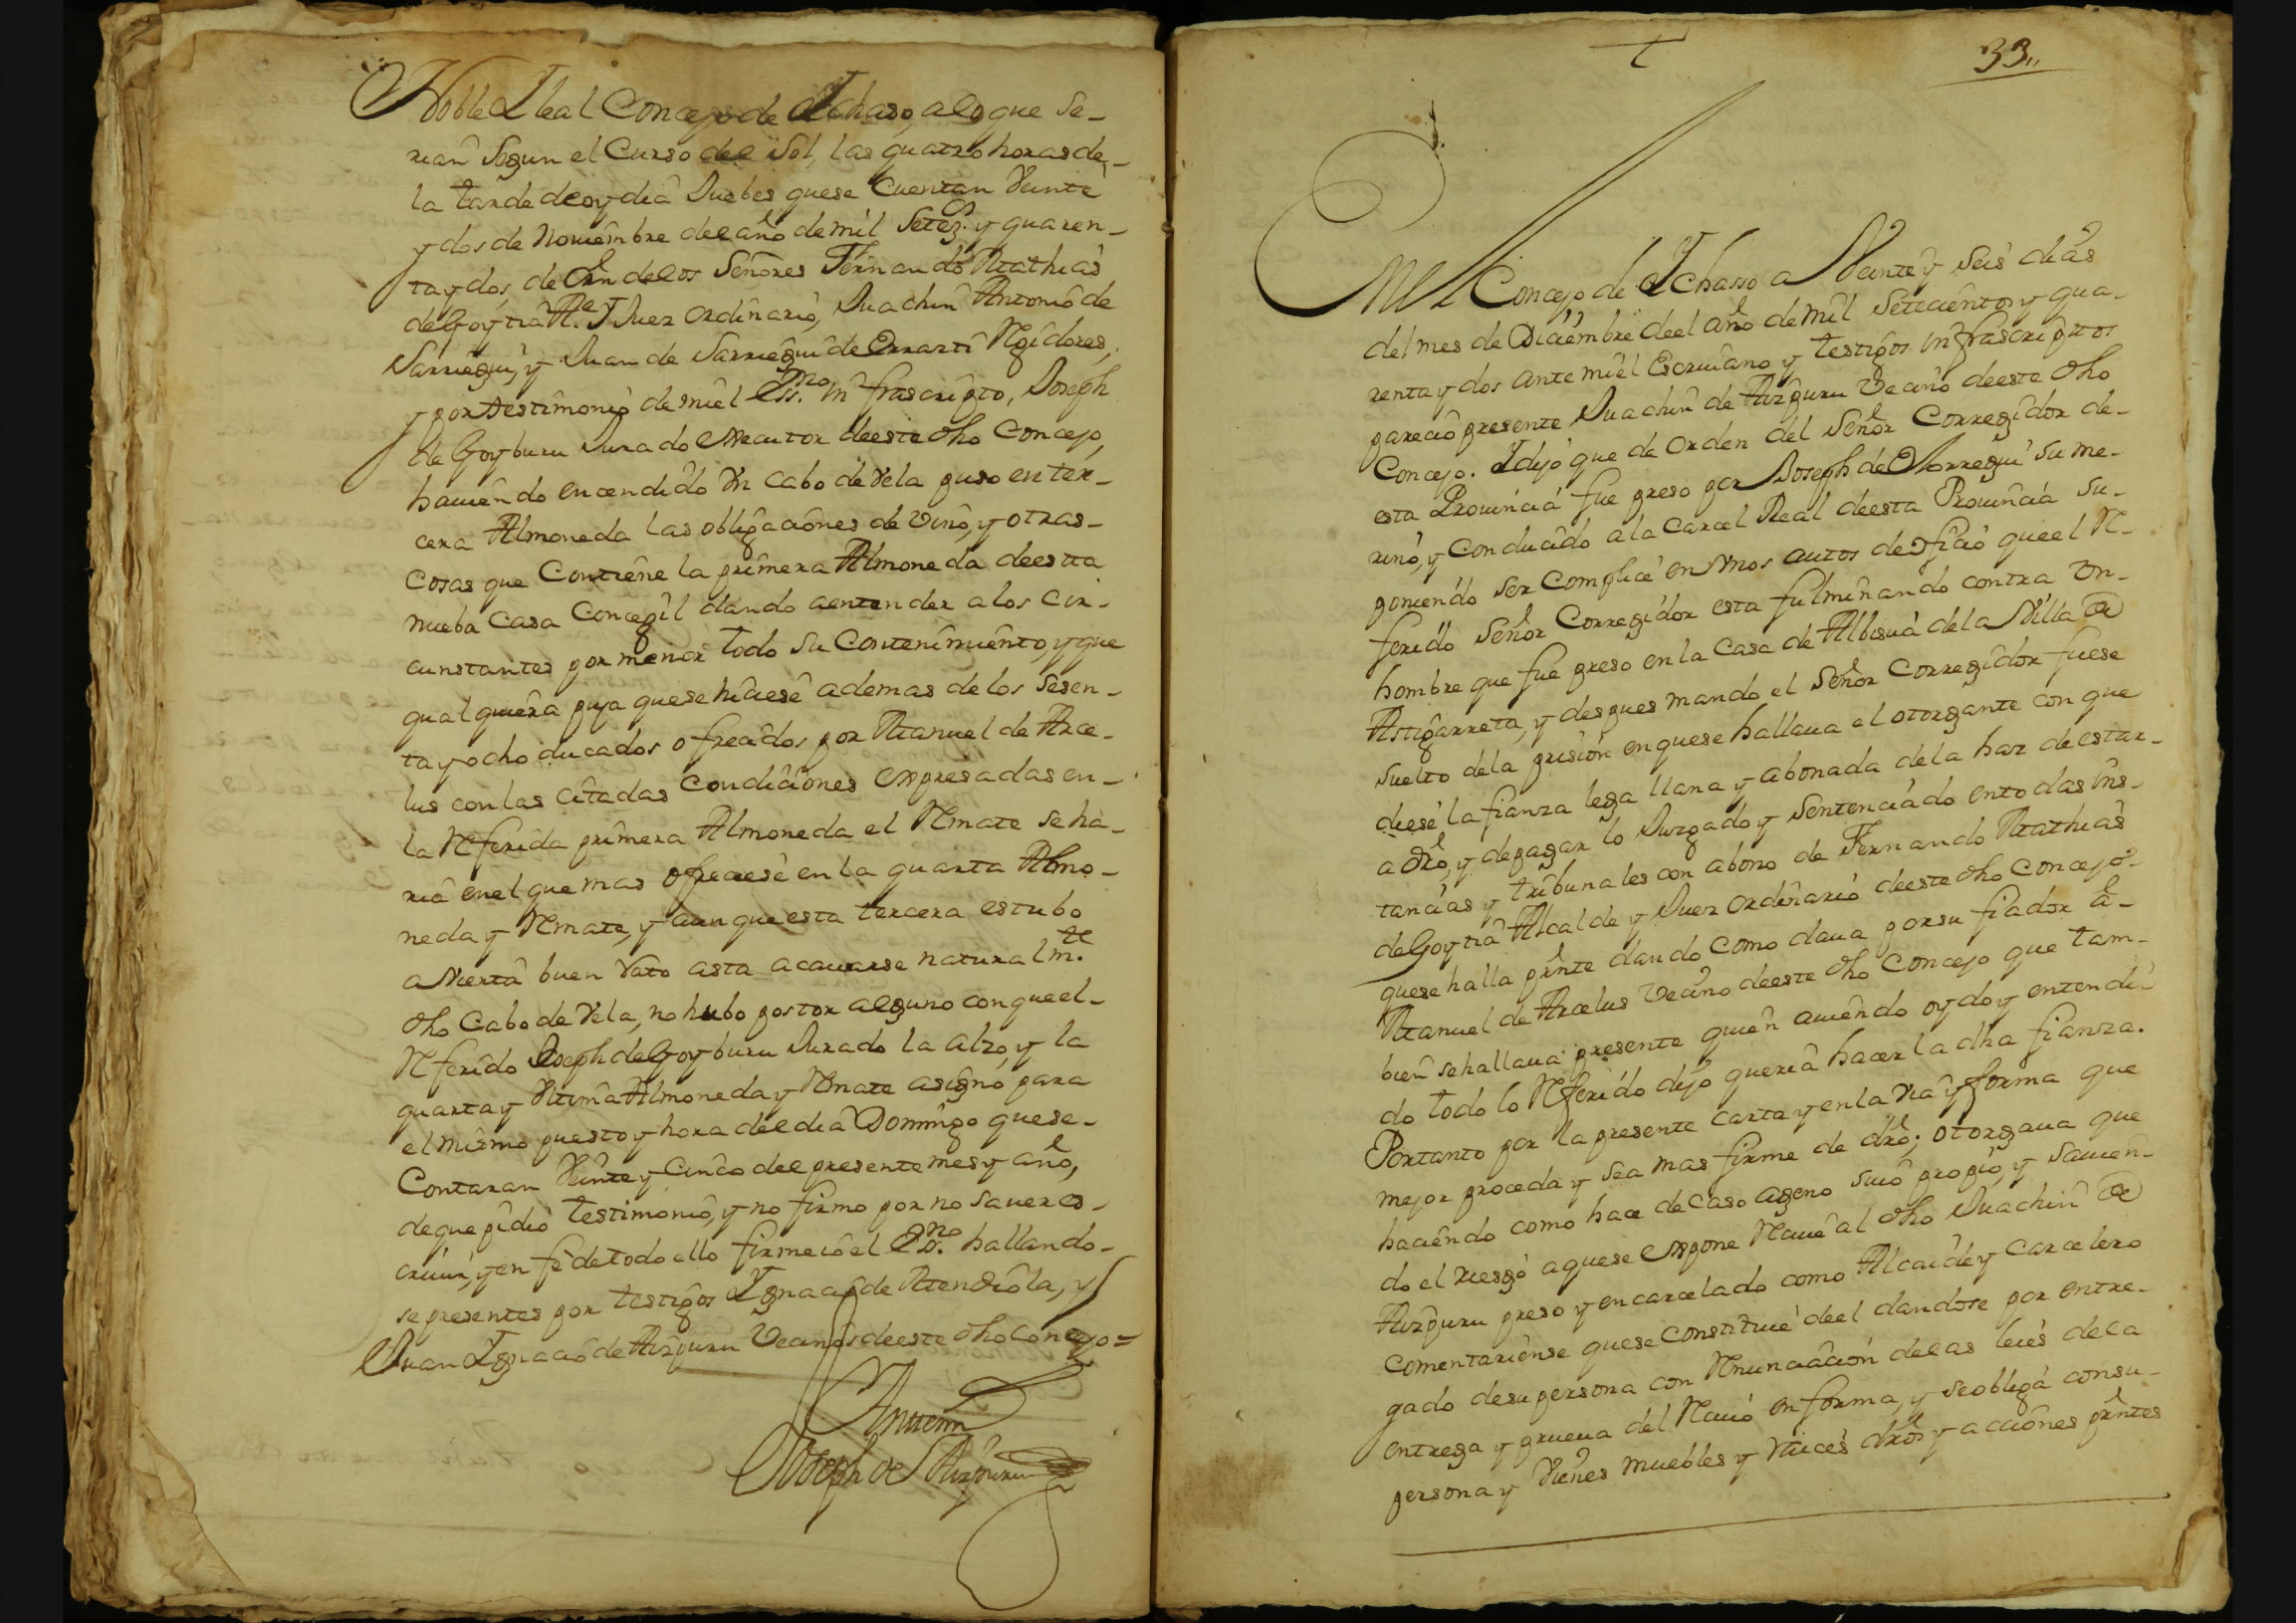 Noble I leal Concejo de Ichaso, a lo que se-
rian segun el Curso del Sol, las quatro horas de-
la tarde de oy dia Juebes que se Cuentan Veinte
y dos de Nouiembre del año de mil Setez.os y quaren-
ta y dos, de orn de los Señores Fernando Mathias
de Goytia Al.e y Juez ordinario, Juachin Antonio de
Sarriegui, y Juan de Sarriegui de Errarti Rejidores,
y por testimonio de mi el Ess.no infrascripto, Joseph
de Goyburu Jurado executor de este dho Concejo,
hauiendo encendido Vn Cabo de Vela puso en ter-
cera Almoneda las obligaciones de vino, y otras-
cosas que Contiene la primera Almoneda de esta
nueba Casa Concegil dando a entender a los Cir-
cunstantes por menor todo su Contenimiento, y que
qualquiera puja que se hiciese ademas de los sesen-
ta y ocho ducados ofrecidos por Manuel de Arce-
lus con las citadas Condiciones expresadas en-
la Referida primera Almoneda el Remate se ha-
ria en el que mas ofreciese en la quarta Almo-
neda y Remate, y aunque esta tercera estubo
avierta buen Rato asta acauarse naturalm.te
dho Cabo de Vela, no hubo postor alguno con que el-
Referido Joseph de Goyburu Jurado la alzo, y la
quarta y Vltima Almoneda y Remate asigno para
el mismo puesto y hora del dia Domingo que se-
Contaran Veinte y Cinco del presente mes y año,
de que pidio testimonio, y no firmo por no sauer es-
criuir, y en fe de todo ello firme io el Ess.no hallando-
se presentes por testigos Ignacio de Mendiola, y
Juan Ignacio de Aizpuru Vecinos de este dho Concejo=
Antemi
Joseph de Aizpuru
33,,
En el Concejo de Ichasso a Veinte y Seis dias
del mes de Diciembre de el año de mil Setecientos y qua-
renta y dos ante mi el Escriuano y testigos infrascriptos
parecio presente Juachin de Aizpuru Vecino de este dho
Concejo. I dijo que de orden del Señor Corregidor de-
esta Prouincia fue preso por Joseph de Jorregui su me-
rino, y Conducido a la Carcel Real de esta Prouincia su-
poniendo ser Complice en Vnos autos de oficio que el Re-
ferido Señor Corregidor esta fulminando contra Vn-
hombre que fue preso en la Casa de Albisua de la Villa de
Astigarreta, y despues mando el Señor Corregidor fuese
suelto de la prision en que se hallaua el otorgante con que
diese la fianza lega llana y abonada de la haz de estar-
a dro, y de pagar lo Juzgado y sentenciado en todas ins-
tancias y tribunales con abono de Fernando Mathias
de Goytia Alcalde y Juez ordinario de este dho Concejo-
que se halla prnte dando como daua por su fiador a-
Manuel de Arcelus Vecino de este dho Concejo que tam-
bien se hallaua presente quien auiendo oydo y entendi-
do todo lo Referido dijo queria hacer la dha fianza.
Portanto por la presente carta y en la via y forma que
mejor proceda y sea mas firme de dro; otorgaua que
haciendo como hace de caso ageno suio propio, y sauien-
do el riesgo a que se expone Reciue al dho Juachin de
Aizpuru preso y encarcelado como Alcaide y Carcelero
Comentariense que se constituie de el dandose por entre-
gado de su persona con Renunciacion de las leies de la
entrega y prueua del Reciuo en forma, y se obliga con su-
persona y Vienes muebles y Raices dros y acciones prntes